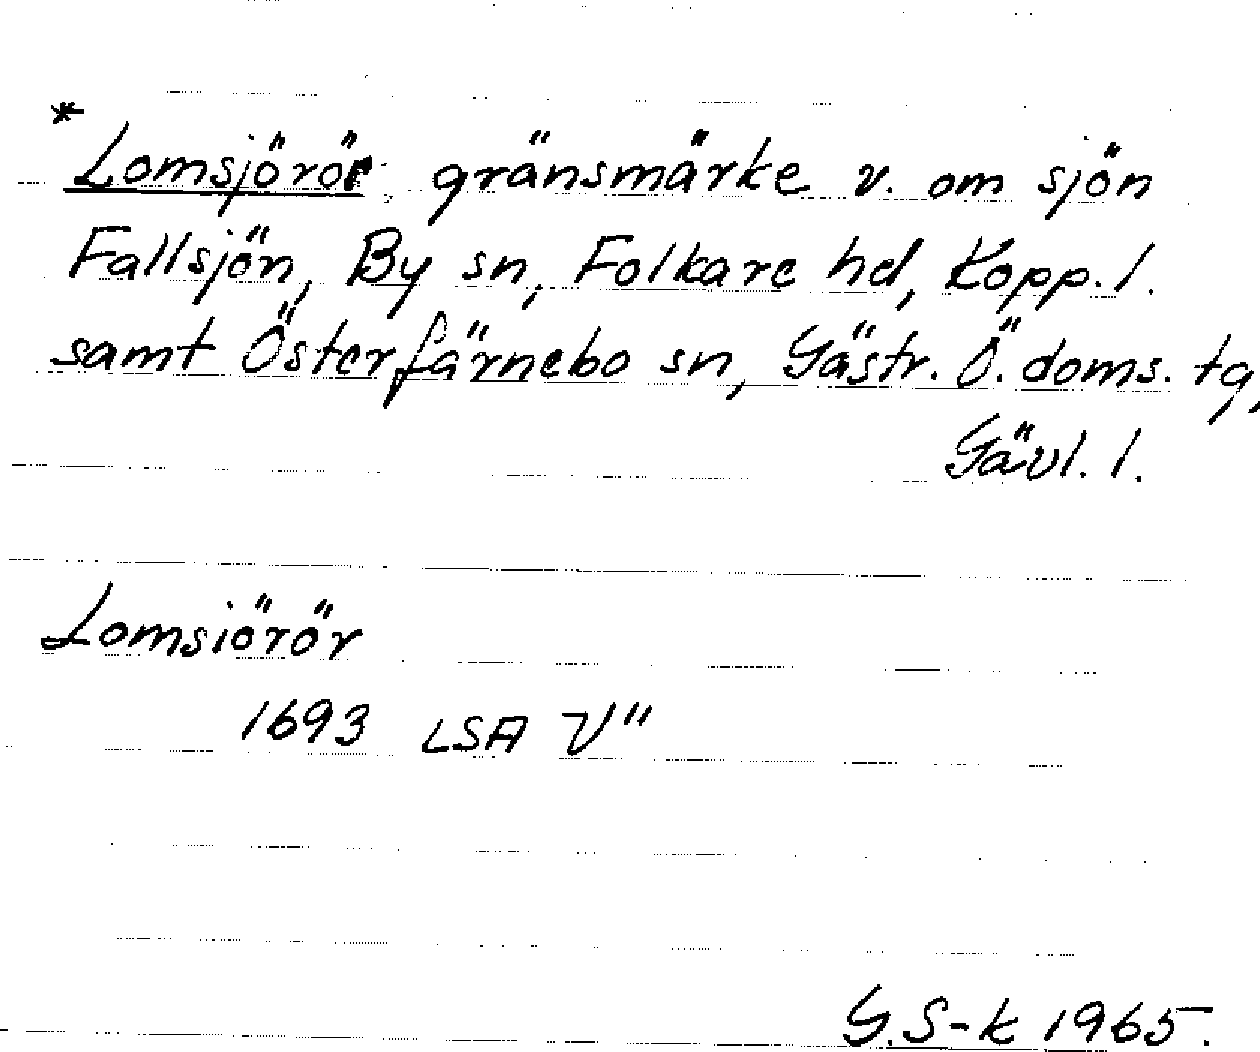 *Lomsjörör, gränsmärke v. om sjön
Fallsjön, By sn, Folkare hd, Kopp. l.
samt Österfärnebo sn, Gästr. Ö. doms. tg,
Gävl. l.
Lomsiörör
1693 LSA V"
G.S-k 1965.